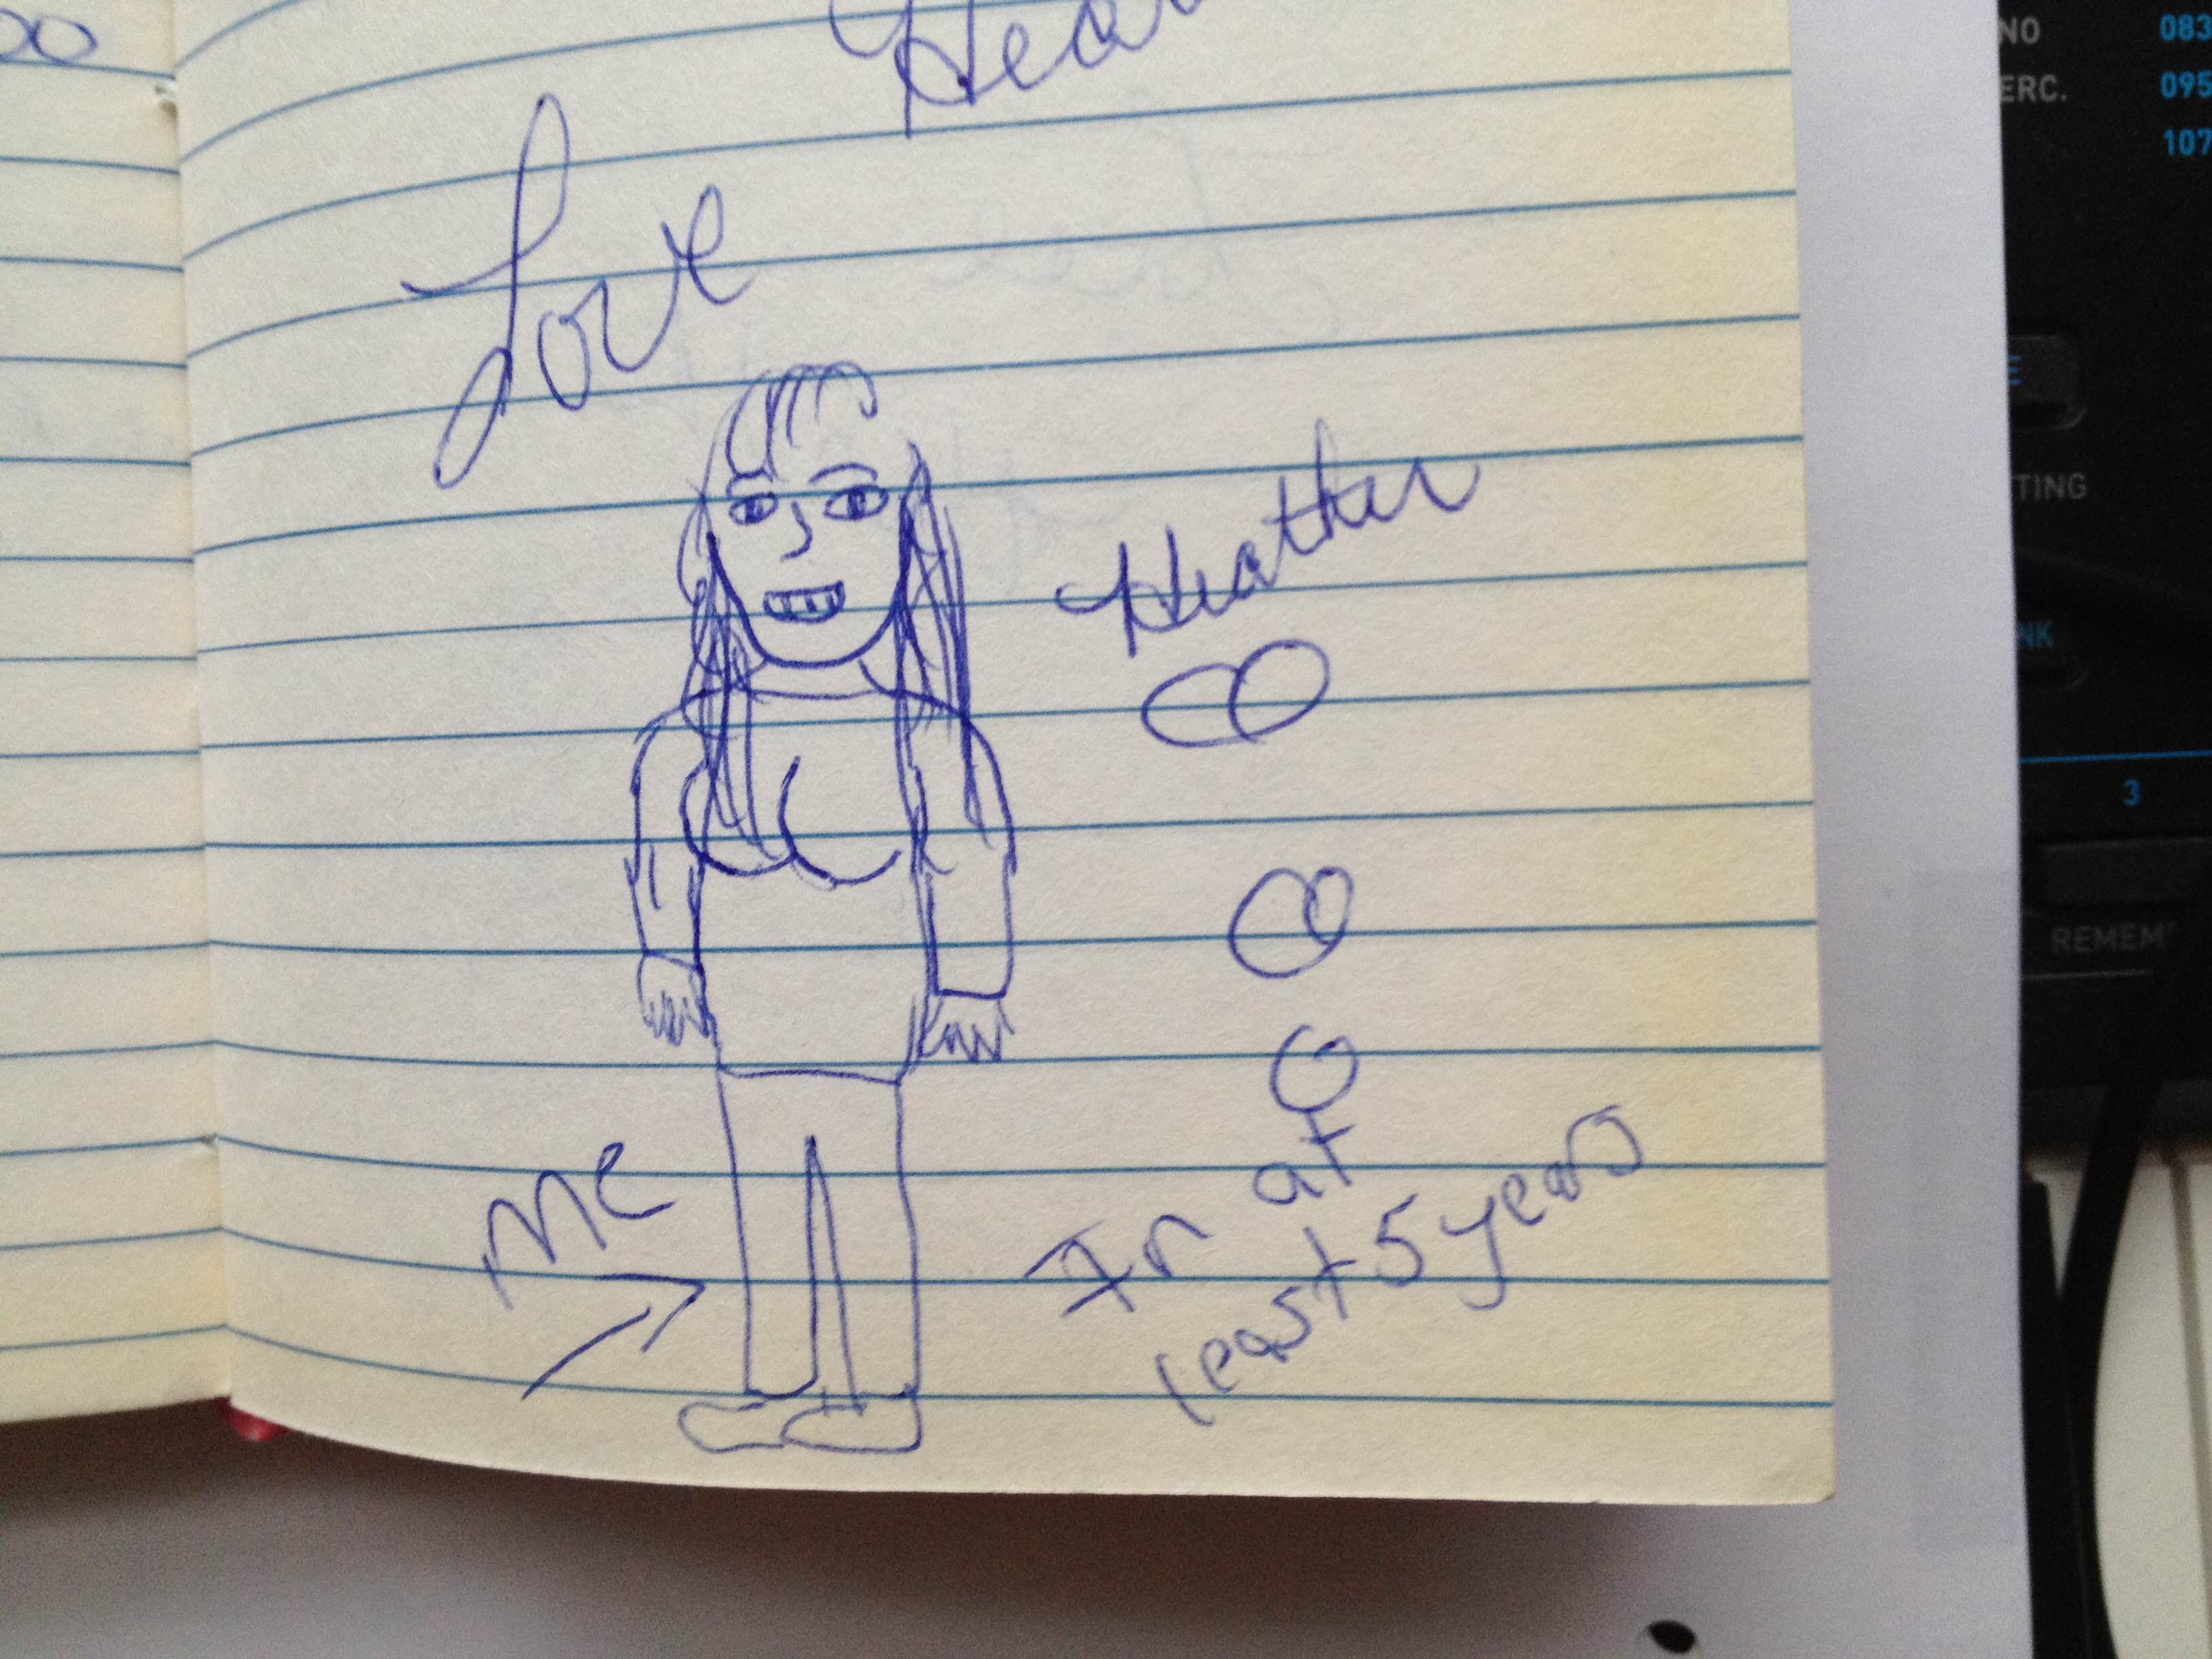 Hea
Love
Heather
Me
In at
least 5 years
NO 083
ERC. 095
107
E
TING
NK
3
REMEM